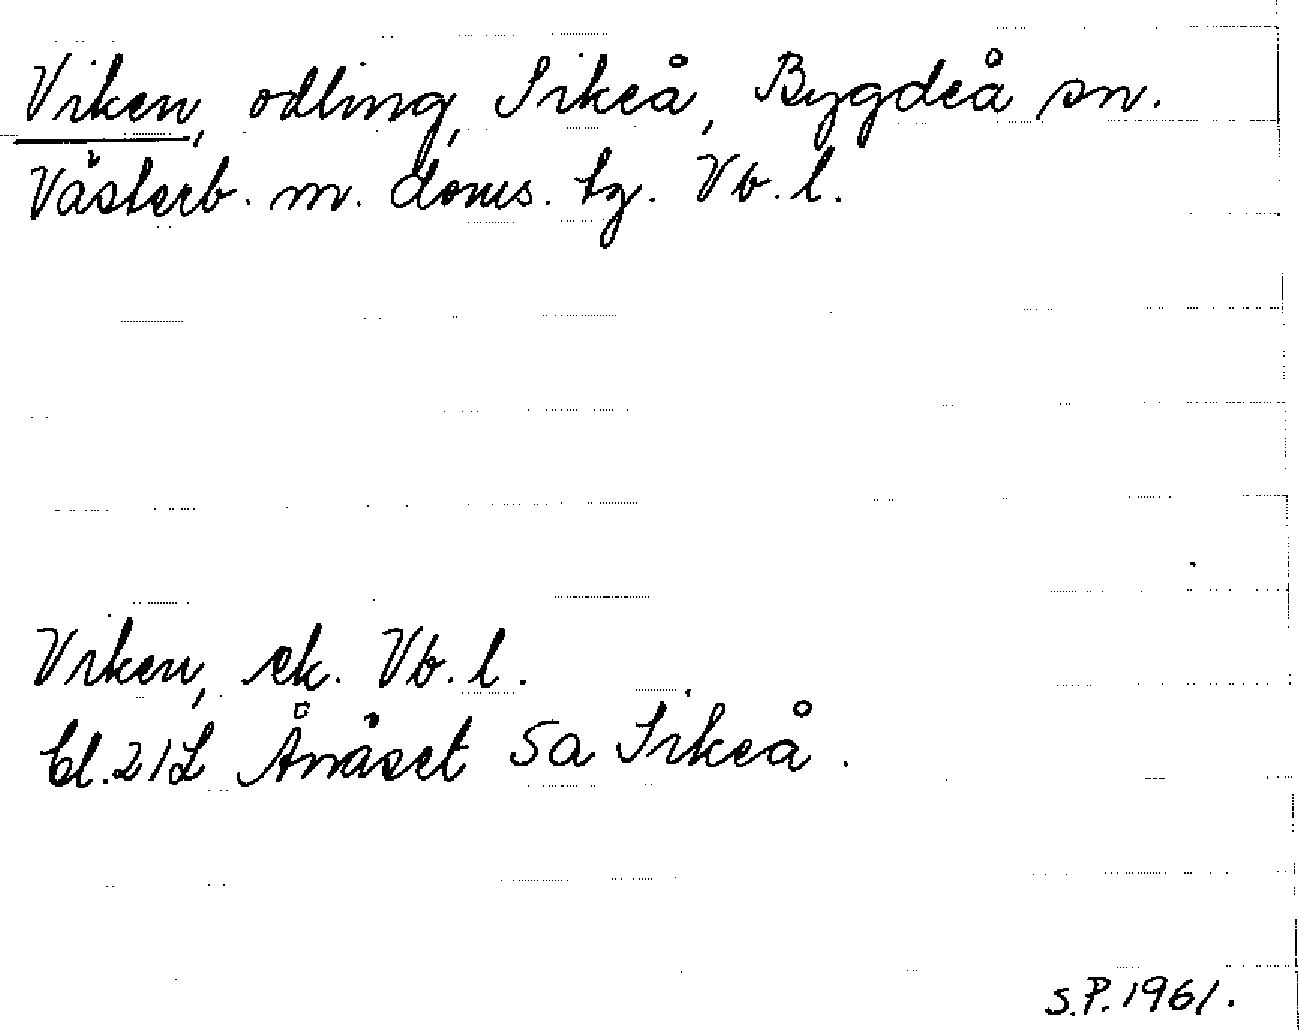 Viken, odling, Sikeå, Bygdeå sn.
Västerb. m. doms. tg. Vb. l.
Viken, ek. Vb. l.
bl. 21L Ånäset 5a Sikeå.
S.P. 1961.